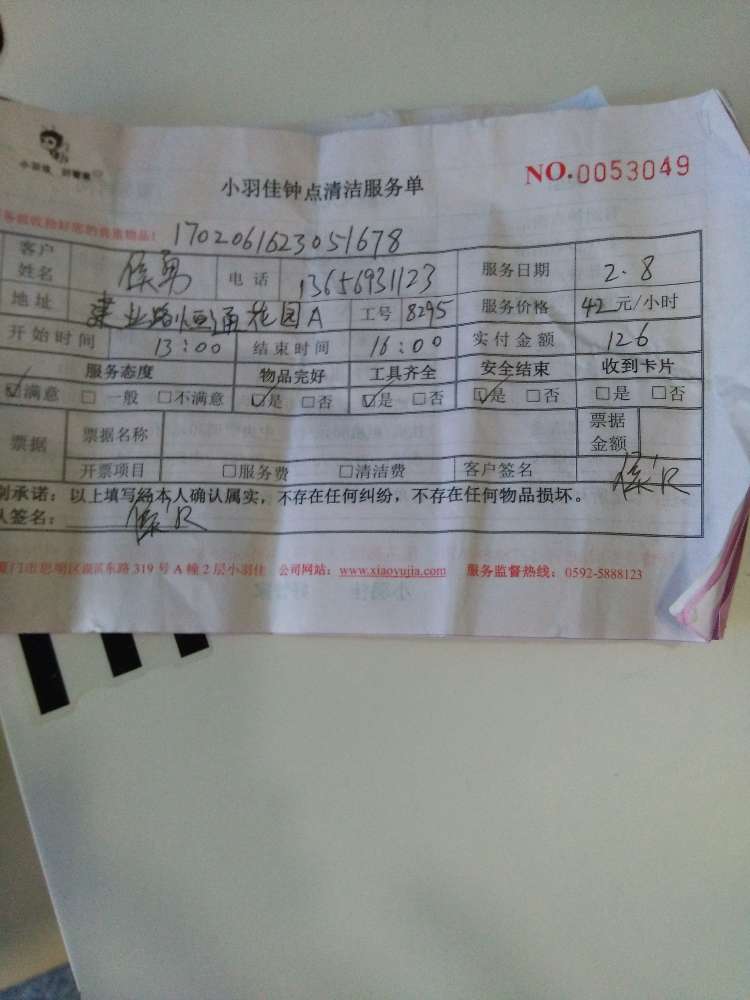 小羽佳 好管家
小羽佳钟点清洁服务单
NO.0053049
收拾好您的贵重物品!
1702061623051678
客户姓名 侯勇 电话 13656931123 服务日期 2.8
地址 建业路恒通花园A 工号 8295 服务价格 42元/小时
开始时间 13:00 结束时间 16:00 实付金额 126
服务态度 物品完好 工具齐全 安全结束 收到卡片
☑满意 □一般 □不满意 ☑是 □否 ☑是 □否 ☑是 □否 □是 □否
票据 票据名称 票据金额
开票项目 □服务费 □清洁费 客户签名
承诺:以上填写经本人确认属实,不存在任何纠纷,不存在任何物品损坏。
签名:
厦门市思明区湖滨东路319号A幢2层小羽佳 公司网站:www.xiaoyujia.com 服务监督热线:0592-5888123